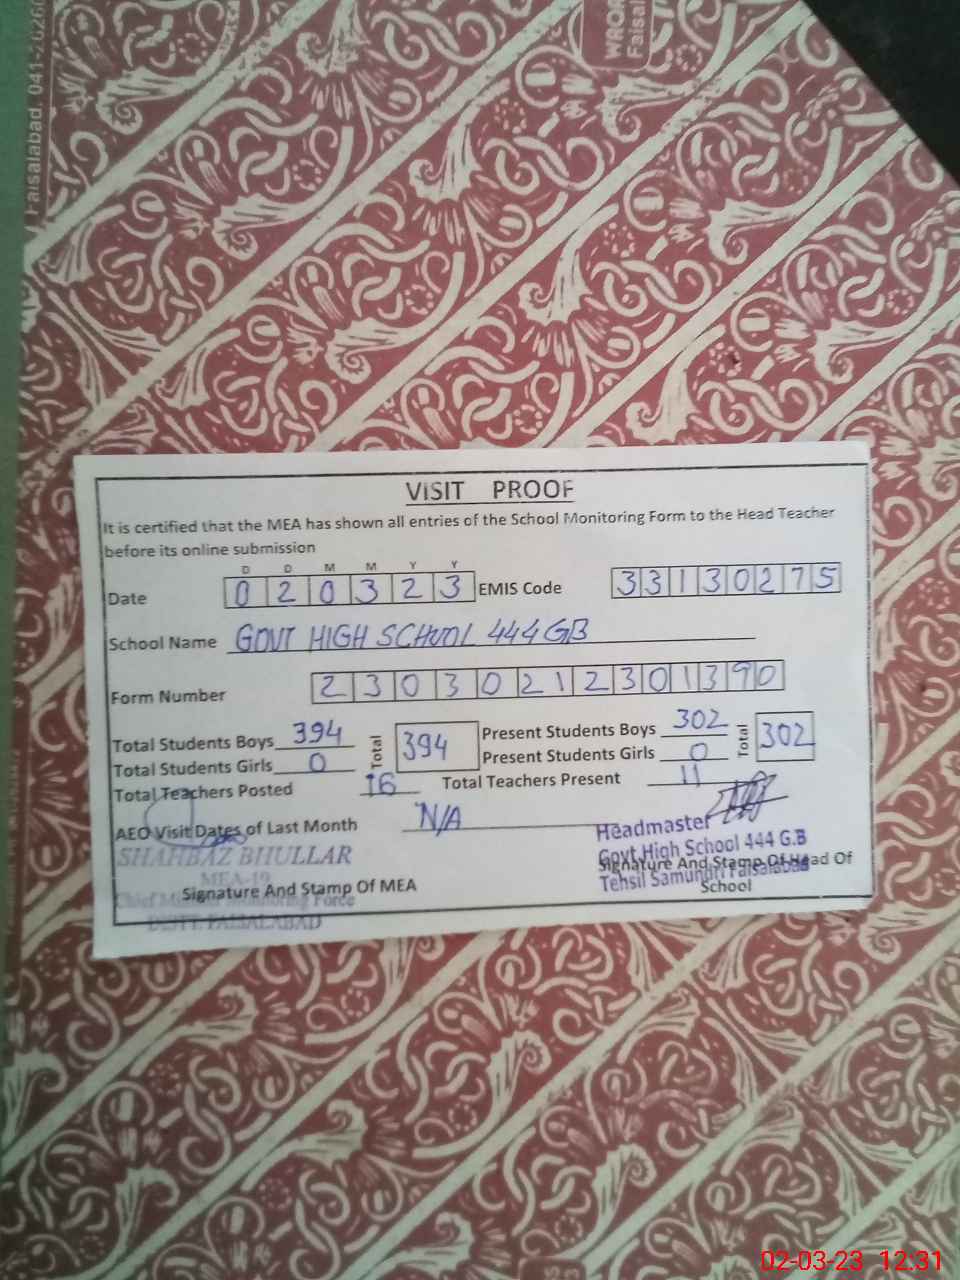 Faisalabad. 041-2626
WROR
Faisal
VISIT PROOF
It is certified that the MEA has shown all entries of the School Monitoring Form to the Head Teacher
before its online submission
D D M M Y Y
Date 0 2 0 3 2 3 EMIS Code 3 3 1 3 0 2 7 5
School Name GOVT HIGH SCHOOL 444 GB
Form Number 2 3 0 3 0 2 1 2 3 0 1 3 9 0
Total Students Boys 394 Total 394 Present Students Boys 302 Total 302
Total Students Girls 0 Present Students Girls 0
Total Teachers Posted 16 Total Teachers Present 11
AEO Visit Dates of Last Month N/A
Headmaster
Govt High School 444 G.B
Tehsil Samundri Faisalabad
Signature And Stamp Of Head Of
School
SHAHBAZ BHULLAR
MEA-19
Signature And Stamp Of MEA
Chief Minister Monitoring Force
DISTT. FAISALABAD
02-03-23 12:31